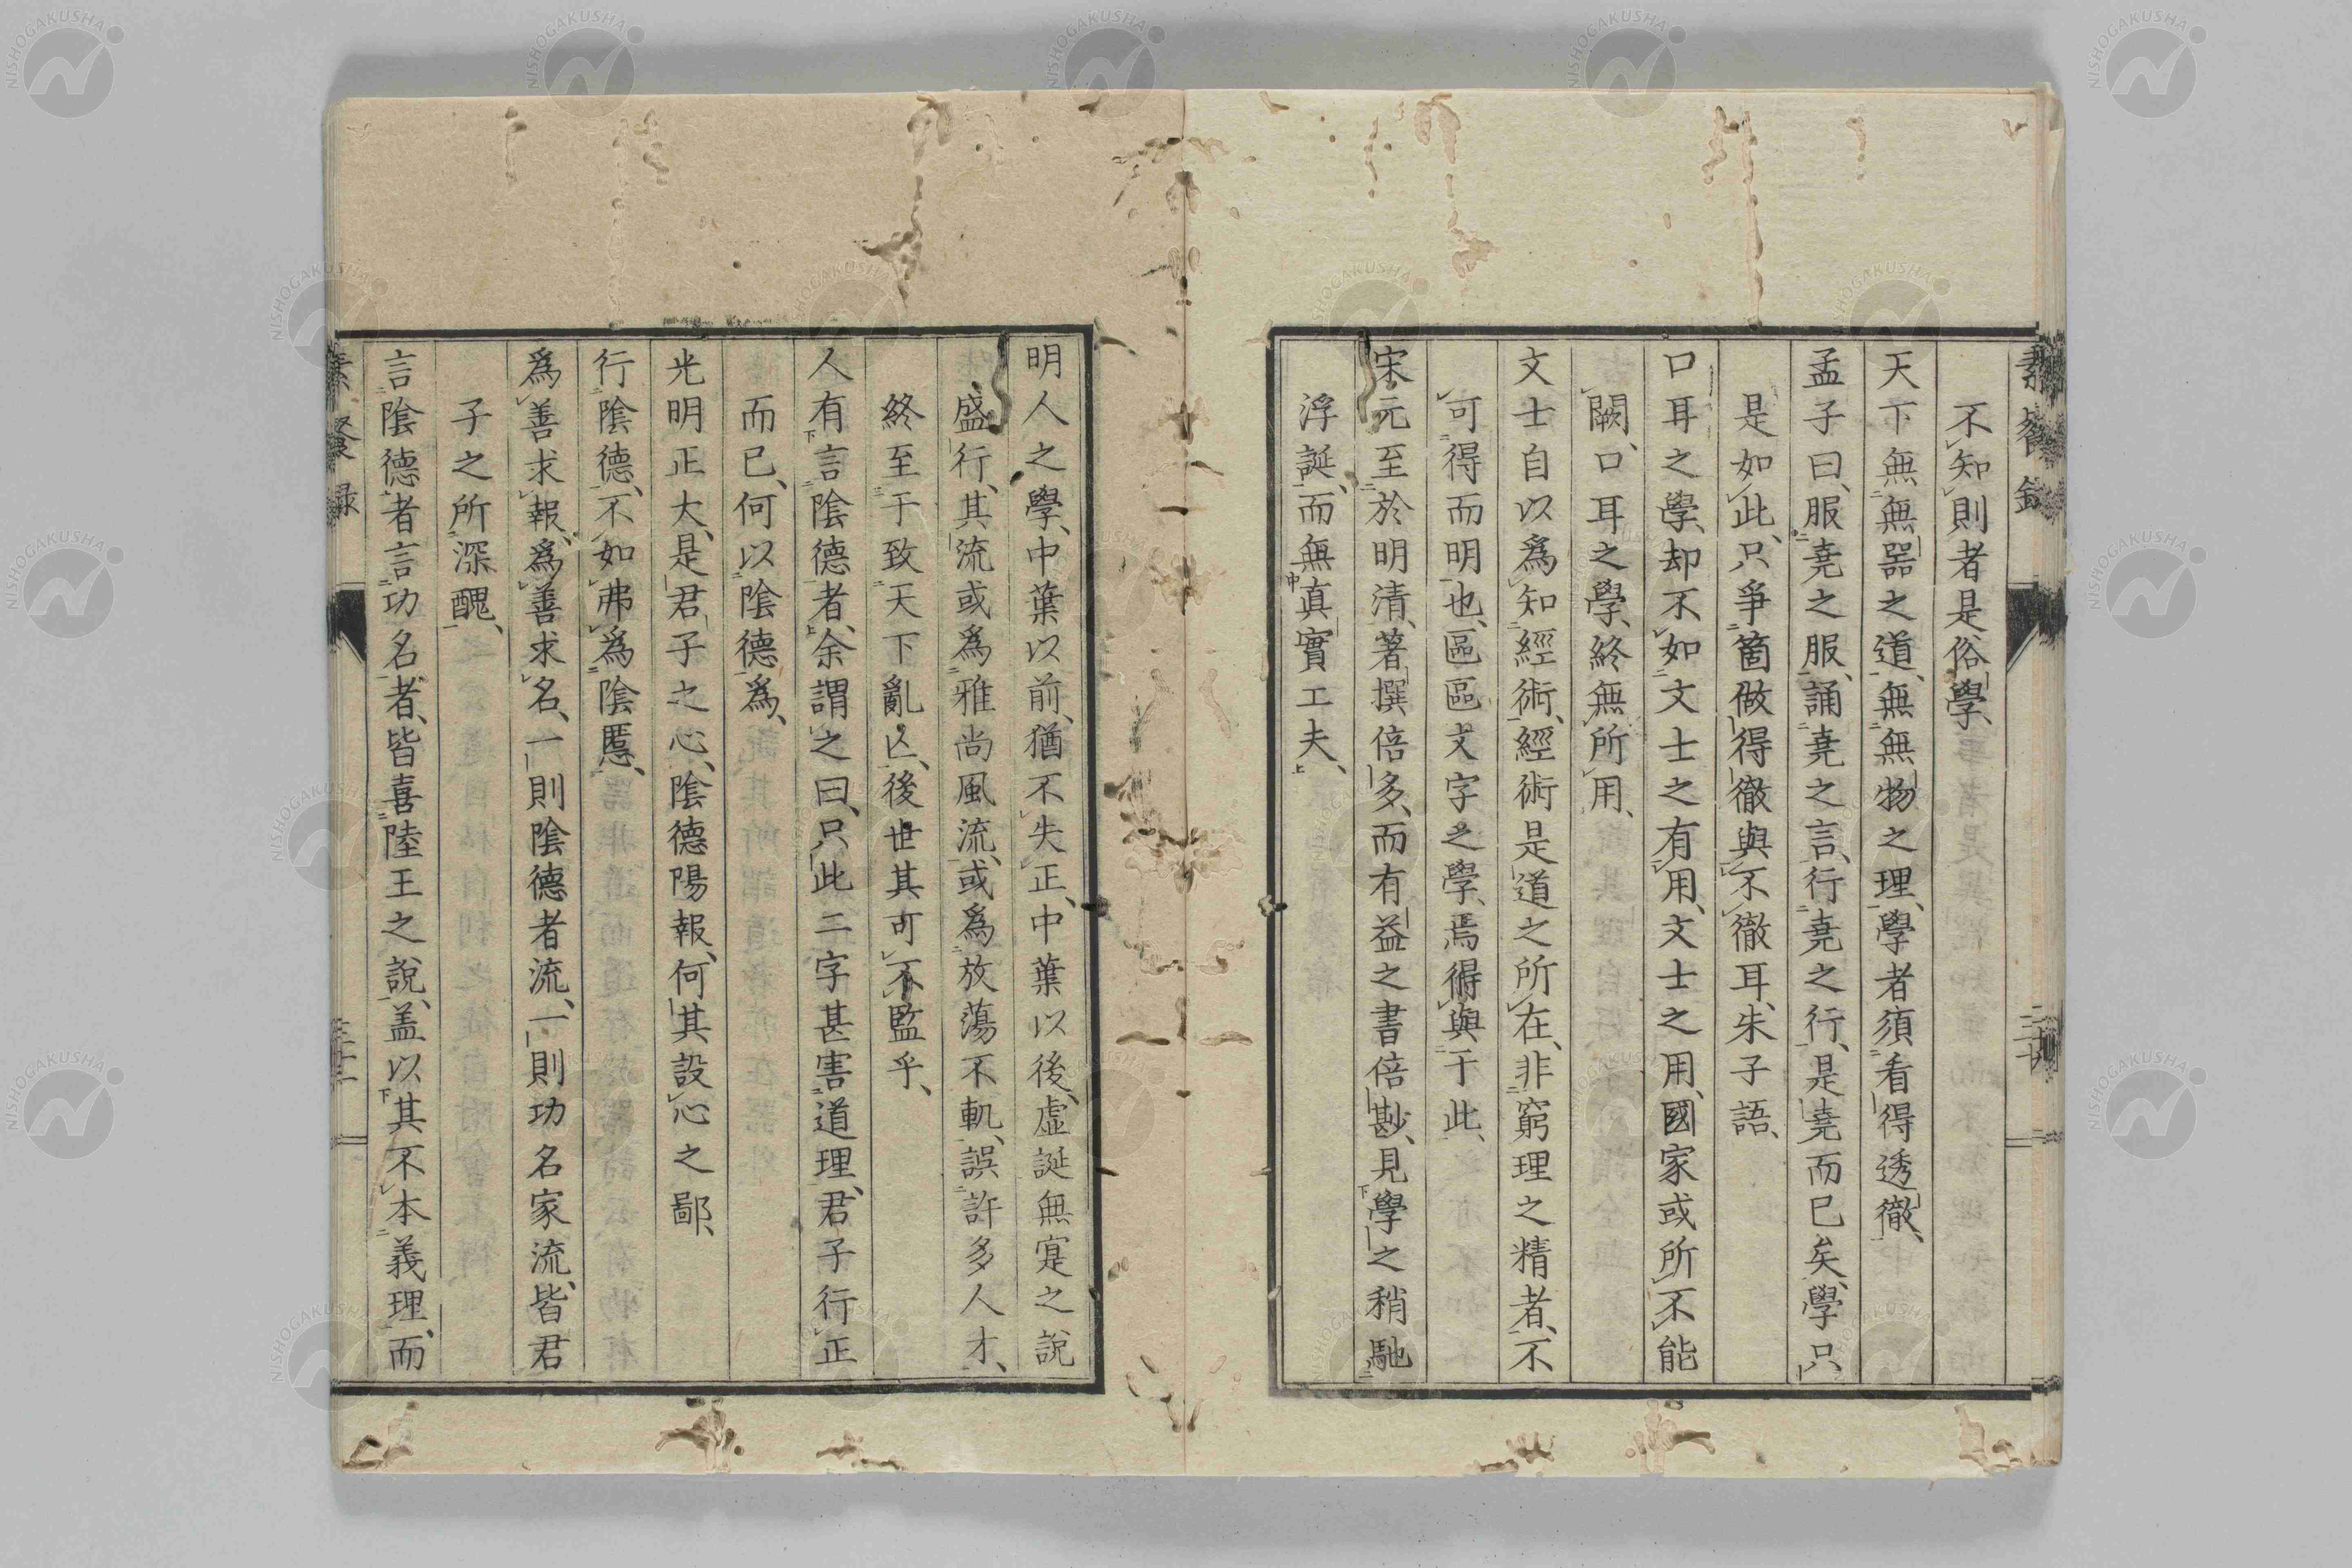 不知則者是俗學、
天下無無噐之道、無無物之理、學者須看得透徹、
孟子曰、服堯之服、誦堯之言、行堯之行、是堯而已矣、學只
是如此、只爭箇做得徹與不徹耳、朱子語、
口耳之學、却不如文士之有用、文士之用、國家或所不能
闕、口耳之學、終無所用、
文士自以爲知經術、經術是道之所在、非窮理之精者、不
可得而明也、區區文字之學、焉得與于此、
宋元至於明清、著撰倍多、而有益之書倍尠、見學之稍馳
浮誕、而無真實工夫、
明人之學、中葉以前、猶不失正、中葉以後、虛誕無寔之說
盛行、其流或爲雅尚風流、或爲放蕩不軌、誤許多人才、
終至于致天下亂亡、後世其可不監乎、
人有言陰德者、余謂之曰、只此二字甚害道理、君子行正
而已、何以陰德爲、
光明正大、是君子之心、陰德陽報、何其設心之鄙、
行陰德、不如弗爲陰慝、
爲善求報、爲善求名、一則陰德者流、一則功名家流、皆君
子之所深醜、
言陰德者、言功名者、皆喜陸王之說、盖以其不本義理、而
NISHOGAKUSHA